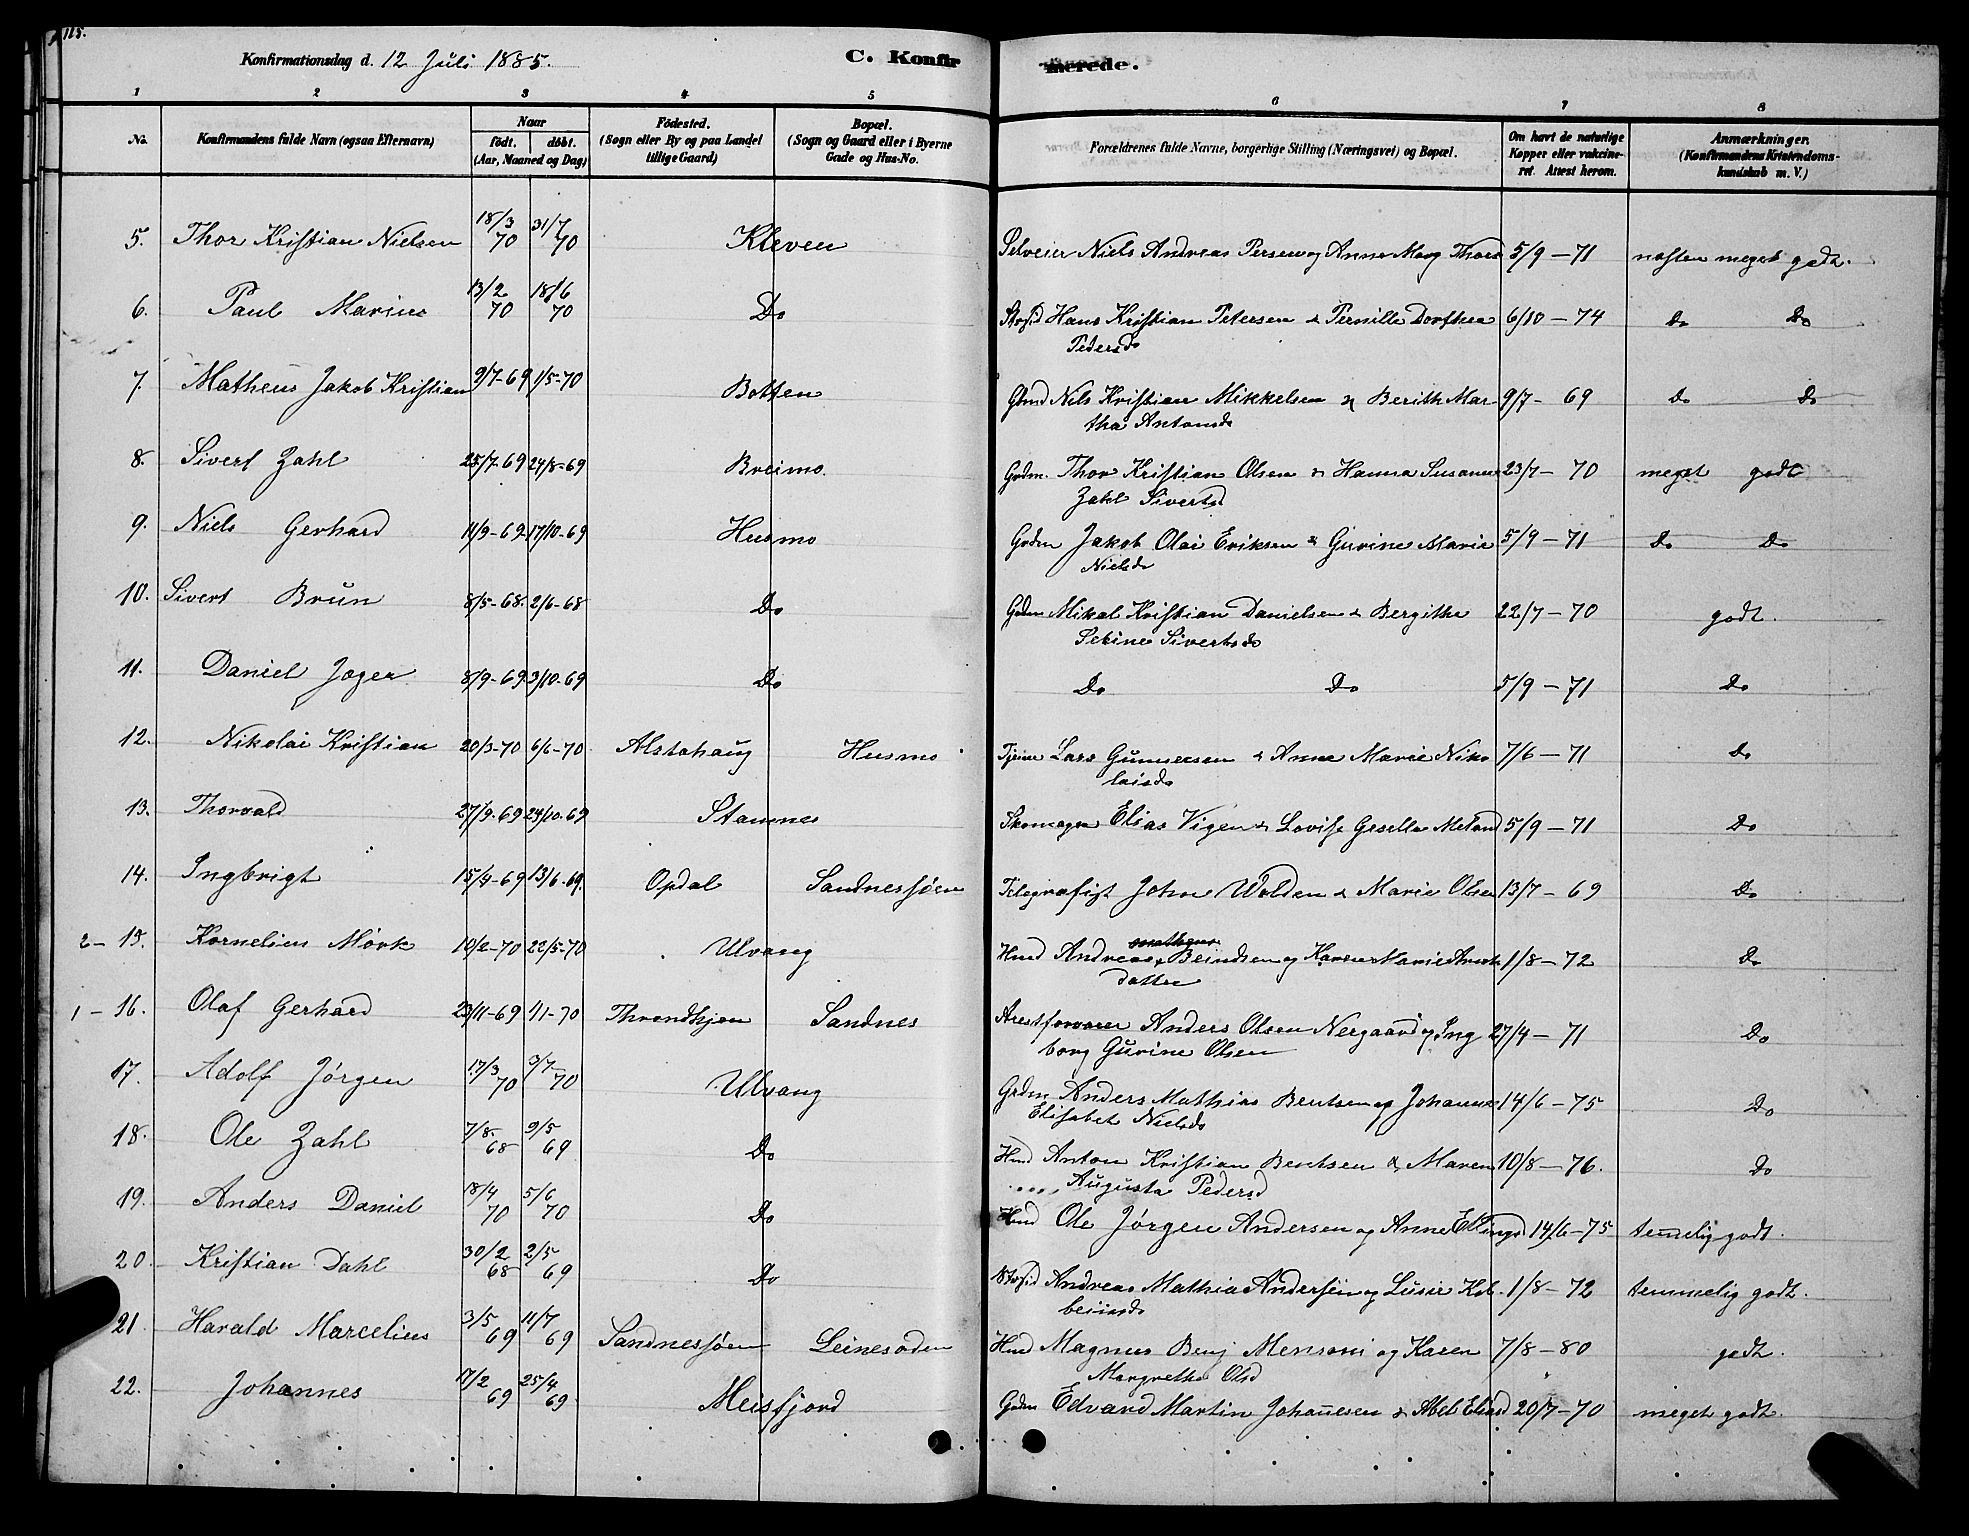 115.
Konfirmationsdag d. 12 Juli 1885.
C. Konfirmerede.
1 2 3 4 5 6 7 8
No. Konfirmandens fulde Navn (ogsaa Efternavn) Naar født. døbt. (Aar, Maaned og Dag) Fødested. (Sogn eller By og paa Landet tillige Gaard) Bopæl. (Sogn og Gaard eller i Byerne Gade og Hus-No. Forældrenes fulde Navne, borgerlige Stilling (Næringsvei) og Bopæl. Om havt de naturlige Kopper eller vakcineret. Attest herom. Anmærkninger. (Konfirmandens Kristendomskundskab m. V.)
5. Thor Kristian Nielsen 18/3 70 31/7 70 Kleven Selveier Niels Andreas Persen og Anne Marg Thorsd 5/9 - 71 næsten meget godt.
6. Paul Marius 13/2 70 18/6 70 Do Hans Kristian Petersen & Pernille Dorthea 6/10 - 74 Do Do
Pedersd
7. Matheus Jakob Kristian 9/7-69 1/5-70 Botten Gbmd Nils Kristian Mikkelsen & Berith Mar- 9/7 - 69 Do Do
tha Antonsd
8. Sivert Zahl 25/7-69 24/8-69 Breimo Grdm. Thor Kristian Olsen & Hanna Susanne 23/7 - 70 meget godt
Zahl Sivertsd
9. Niels Gerhard 11/9-69 17/10-69 Husmo Grdm Jakob Olai Eriksen & Gurine Marie 5/9 - 71 Do Do
Nielsd
10. Sivert Brun 8/5-68. 2/6-68 Do Grdm Mikal Kristian Danielsen & Bergithe 22/7 - 70 godt.
Sivertsd
11. Daniel Jæger 8/9-69 3/10-69 Do Do Do 5/9 - 71 Do
12. Nikolai Kristian 20/3-70 6/6-70 Alstahaug Husmo Tjener Lars Gunnersen & Anne Marie Niko 7/6 - 71 Do
laisd
13. Thorvald 27/9-69 24/10-69 Stamnes Skomager Elias Vigen & Lovise Gesella 5/9 - 71 Do
14. Ingbrigt 15/4-69 13/6-69. Opdal Sandnessjøen Telegrafist John Wolden & Marie Olsen 13/7 - 69 Do
2- 15. Kornelius Mørk 10/2-70 22/5-70 Ulvang Hmd Andreas Beindsen og Karen Marie 1/8 - 72 Do
datter
1 - 16. Olaf Gerhard 23/11-69 -70 Throndhjem Sandnes Arestforvarer Anders Olsen Nergaard og Ing 27/4 - 71 Do
borg Gurine Olsen
17. Adolf Jørgen 17/3 70 3/7 70 Ulvang Grdm Anders Mathias Bentsen og Johanna 14/6 - 75 Do
Elisabet Nielsd
18. Ole Zahl 7/8. 68 9/5 69 Do Hmd Anton Kristian Bentsen & Maren 10/8 - 76. Do
Augusta Pedersd
19. Anders Daniel 18/4 70 5/6 70 Do Hmd Ole Jørgen Andersen og Anne Ellingsd 14/6 - 75 temelig godt.
20. Kristian Dahl 30/2 68 2/5 69 Do Andreas Mathias Andersen og Lusie Kol- 1/8 - 72 temmelig godt.
beinsd
21. Harald Marcelius 3/5 69 11/7 69 Sandnessjøen Leinesoden Hmd Magnus Benj Mensoni og Karen 7/8 - 80 godt.
Margrethe Olsd
22. Johannes 17/2 69 25/4 69. Meisfjord Grdm Edvard Martin Johannesen & Abel Eliasd 20/7 - 70 meget godt.